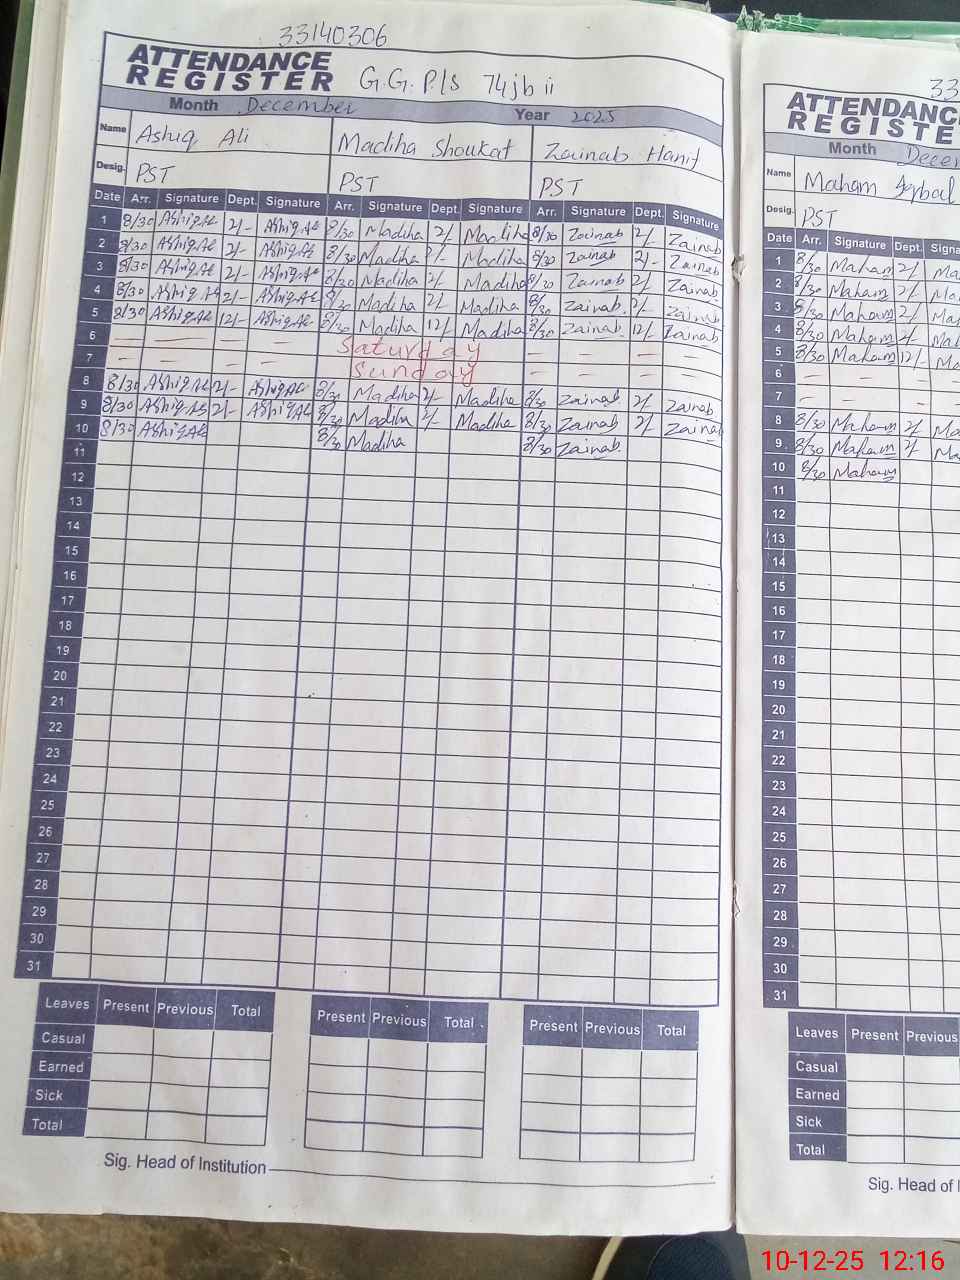 33140306
ATTENDANCE
REGISTER G.G. P/S 74jb ii
Month December Year 2025
Name Ashiq Ali Madiha Shoukat Zainab Hanif
Desig. PST PST PST
Date Arr. Signature Dept. Signature Arr. Signature Dept. Signature Arr. Signature Dept. Signature
1 8/30 2/- 8/30 Madiha 2/- Madiha 8/30 Zainab 2/- Zainab
2 8/30 2/- 8/30 Madiha 2/- Madiha 8/30 Zainab 2/- Zainab
3 8/30 2/- 8/30 Madiha 2/- Madiha 8/30 Zainab 2/- Zainab
4 8/30 2/- 8/30 Madiha 2/- Madiha 8/30 Zainab 2/- Zainab
5 8/30 12/- 8/30 Madiha 12/- Madiha 8/30 Zainab 12/- Zainab
6 — — — — Saturday — — — —
7 — — — — Sunday — — — —
8 8/30 2/- 8/30 Madiha 2/- Madiha 8/30 Zainab 2/- Zainab
9 8/30 2/- 8/30 Madiha 2/- Madiha 8/30 Zainab 2/- Zainab
10 8/30 8/30 Madiha 8/30 Zainab
11
12
13
14
15
16
17
18
19
20
21
22
23
24
25
26
27
28
29
30
31
Leaves Present Previous Total Present Previous Total Present Previous Total
Casual
Earned
Sick
Total
Sig. Head of Institution
33
ATTENDANC
REGISTE
Month Decem
Name Maham Iqbal
Desig. PST
Date Arr. Signature Dept. Signa
1 8/30 Maham 2/- Ma
2 8/30 Maham 2/- Ma
3 8/30 Maham 2/- Ma
4 8/30 Maham 2/- Ma
5 8/30 Maham 12/- Ma
6 — — — —
7 — — — —
8 8/30 Maham 2/- Ma
9 8/30 Maham 2/- Ma
10 8/30 Maham
11
12
13
14
15
16
17
18
19
20
21
22
23
24
25
26
27
28
29
30
31
Leaves Present Previous
Casual
Earned
Sick
Total
Sig. Head of I
10-12-25 12:16